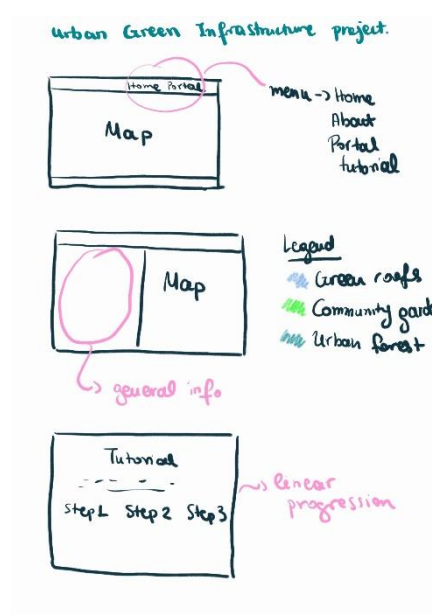 Urban Green Infrastructure project.
Home Portal
menu -> Home
About
Portal
tutorial
Map
Map
Legend
Green roofs
Community gard
Urban forest
general info
Tutorial
Step 1 Step 2 Step 3
linear
progression